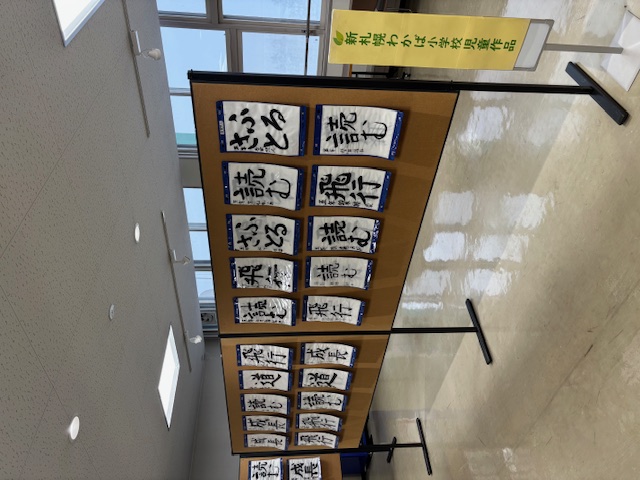 新札幌わかば小学校児童作品
ふるさと
読む
ふるさと
飛行
読む
飛行
道
読む
成長
成長
読む
飛行
読む
読む
飛行
成長
道
読む
飛行
飛行
読む
成長